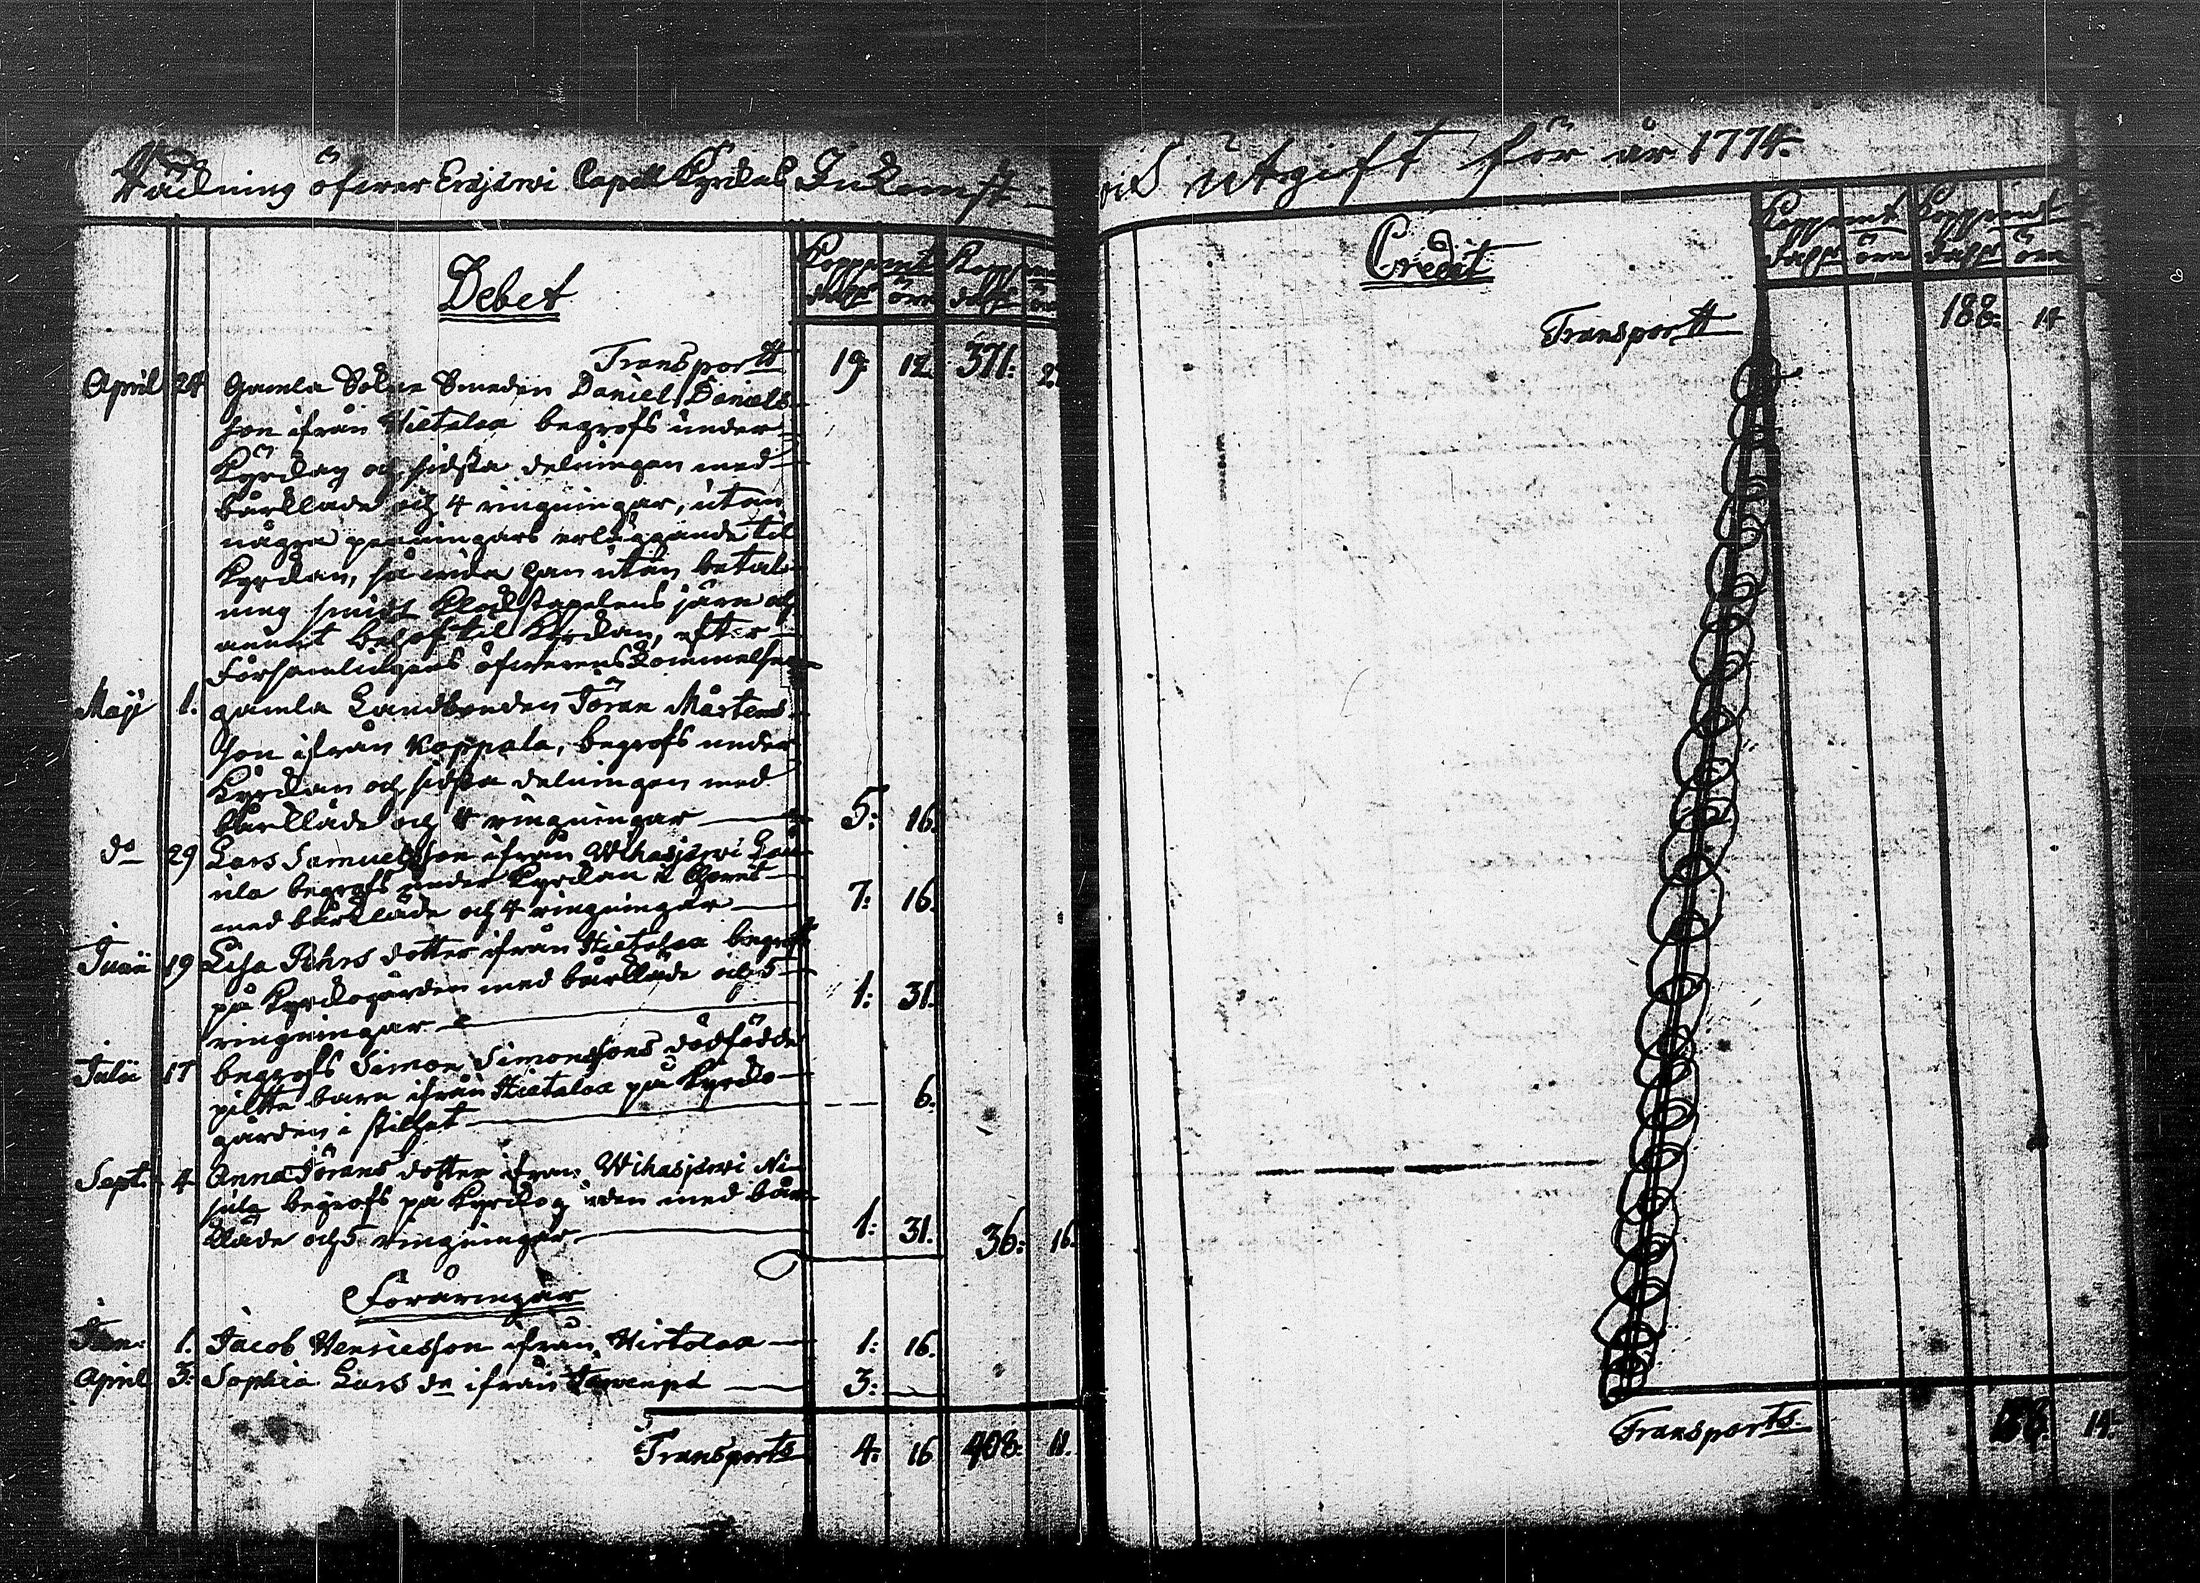 Räckning öfwer Erajerwi Capell Kyrckas Inkomst
och utgift för år 1774.
Debet
Kopparmt Kopparmt
dalr öre dalr öre
Transportt 19: 12. 371: 2
April 24 Gamla Sokne Smeden Daniel Daniels
son ifrån Hietalaa begrofs under
Kyrckan och sidsta delningen med
bårkläde och 4 ringningar, utan
några penningars erläggande til
Kyrckan, så wida han utan betal
ning smidt klockstapelens järn och
annat behof til Kyrckan, efter
Församlingens öfwerenskommelse
Maji 1. gamla Landbonden Jöran Mårtens
son ifrån Koppala, begrofs under
Kyrckan och sidsta delningen med
bårkläde och 4 ringningar 5: 16.
do 29 Lars Samuelsson ifrån Wihasjerwi
begrofs under Kyrckan i Choret
med bårkläde och 4 ringningar 7: 16.
Junii 19 Lisa Pehrs dotter ifrån Hietalaa begrofs
på Kyrckogården med bårkläde och 5
ringningar 1: 31.
Julii 17 begrofs Simon Simonssons dödfödde
piltte barn ifrån Hietalaa på Kyrcko
gården i stilhet 6.
Sept. 4 Anna Jörans dotter ifrån Wihasjerwi Ni
sula begrofs på Kyrckogården med bår
kläde och 5 ringningar 1: 31. 36: 16.
Föräringar
Jan: 1. Jacob Henricsson ifrån Hietalaa 1: 16.
April 3: Sophia Lars dr ifrån 3:
Transports 4: 16 408: 11.
Credit
Kopparmt Kopparmt
dalr öre dalr öre
Transportt 188: 14
Transports 14